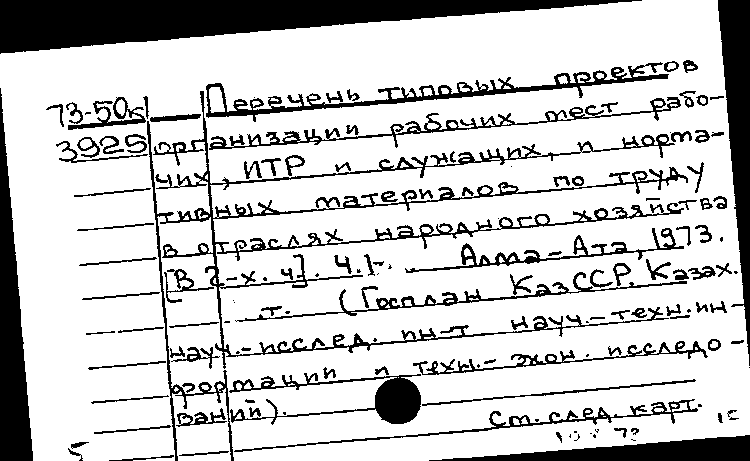 73-50к Перечень типовых проектов
3925 организации рабочих мест рабо-
чих, ИТР и служащих, и норма-
тивных материалов по труду
в отраслях народного хозяйства
[В 2-х. ч]. Ч.1-. Алма-Ата, 1973.
.т. (Госплан КазССР. Казах.
науч.-исслед. ин-т науч.-техн. ин-
формации и техн.-экон. исследо-
ваний).
См. след. карт.